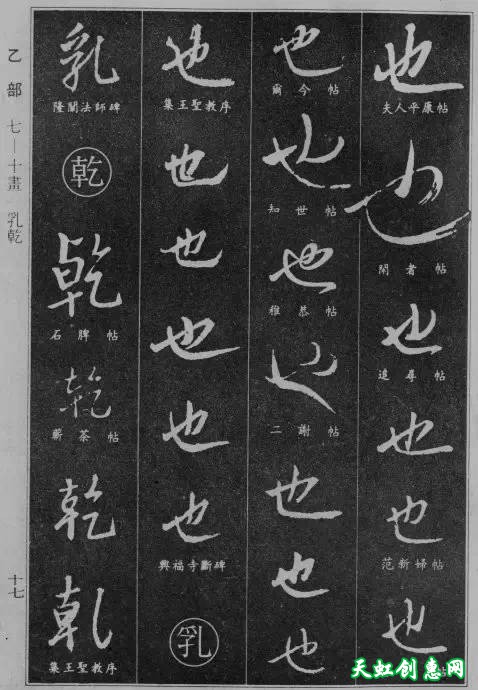 也
夫人平康帖
也
閑者帖
也
追尋帖
也
也
范新婦帖
也
帖
也
爾今帖
也
知世帖
也
稚恭帖
也
二謝帖
也
也
也
也
集王聖教序
也
也
也
也
也
興福寺斷碑
乳
乳
隆闡法師碑
乾
乾
石脾帖
乾
蘄茶帖
乾
乾
集王聖教序
乙部 七—十畫 乳乾
十七
天虹创惠网